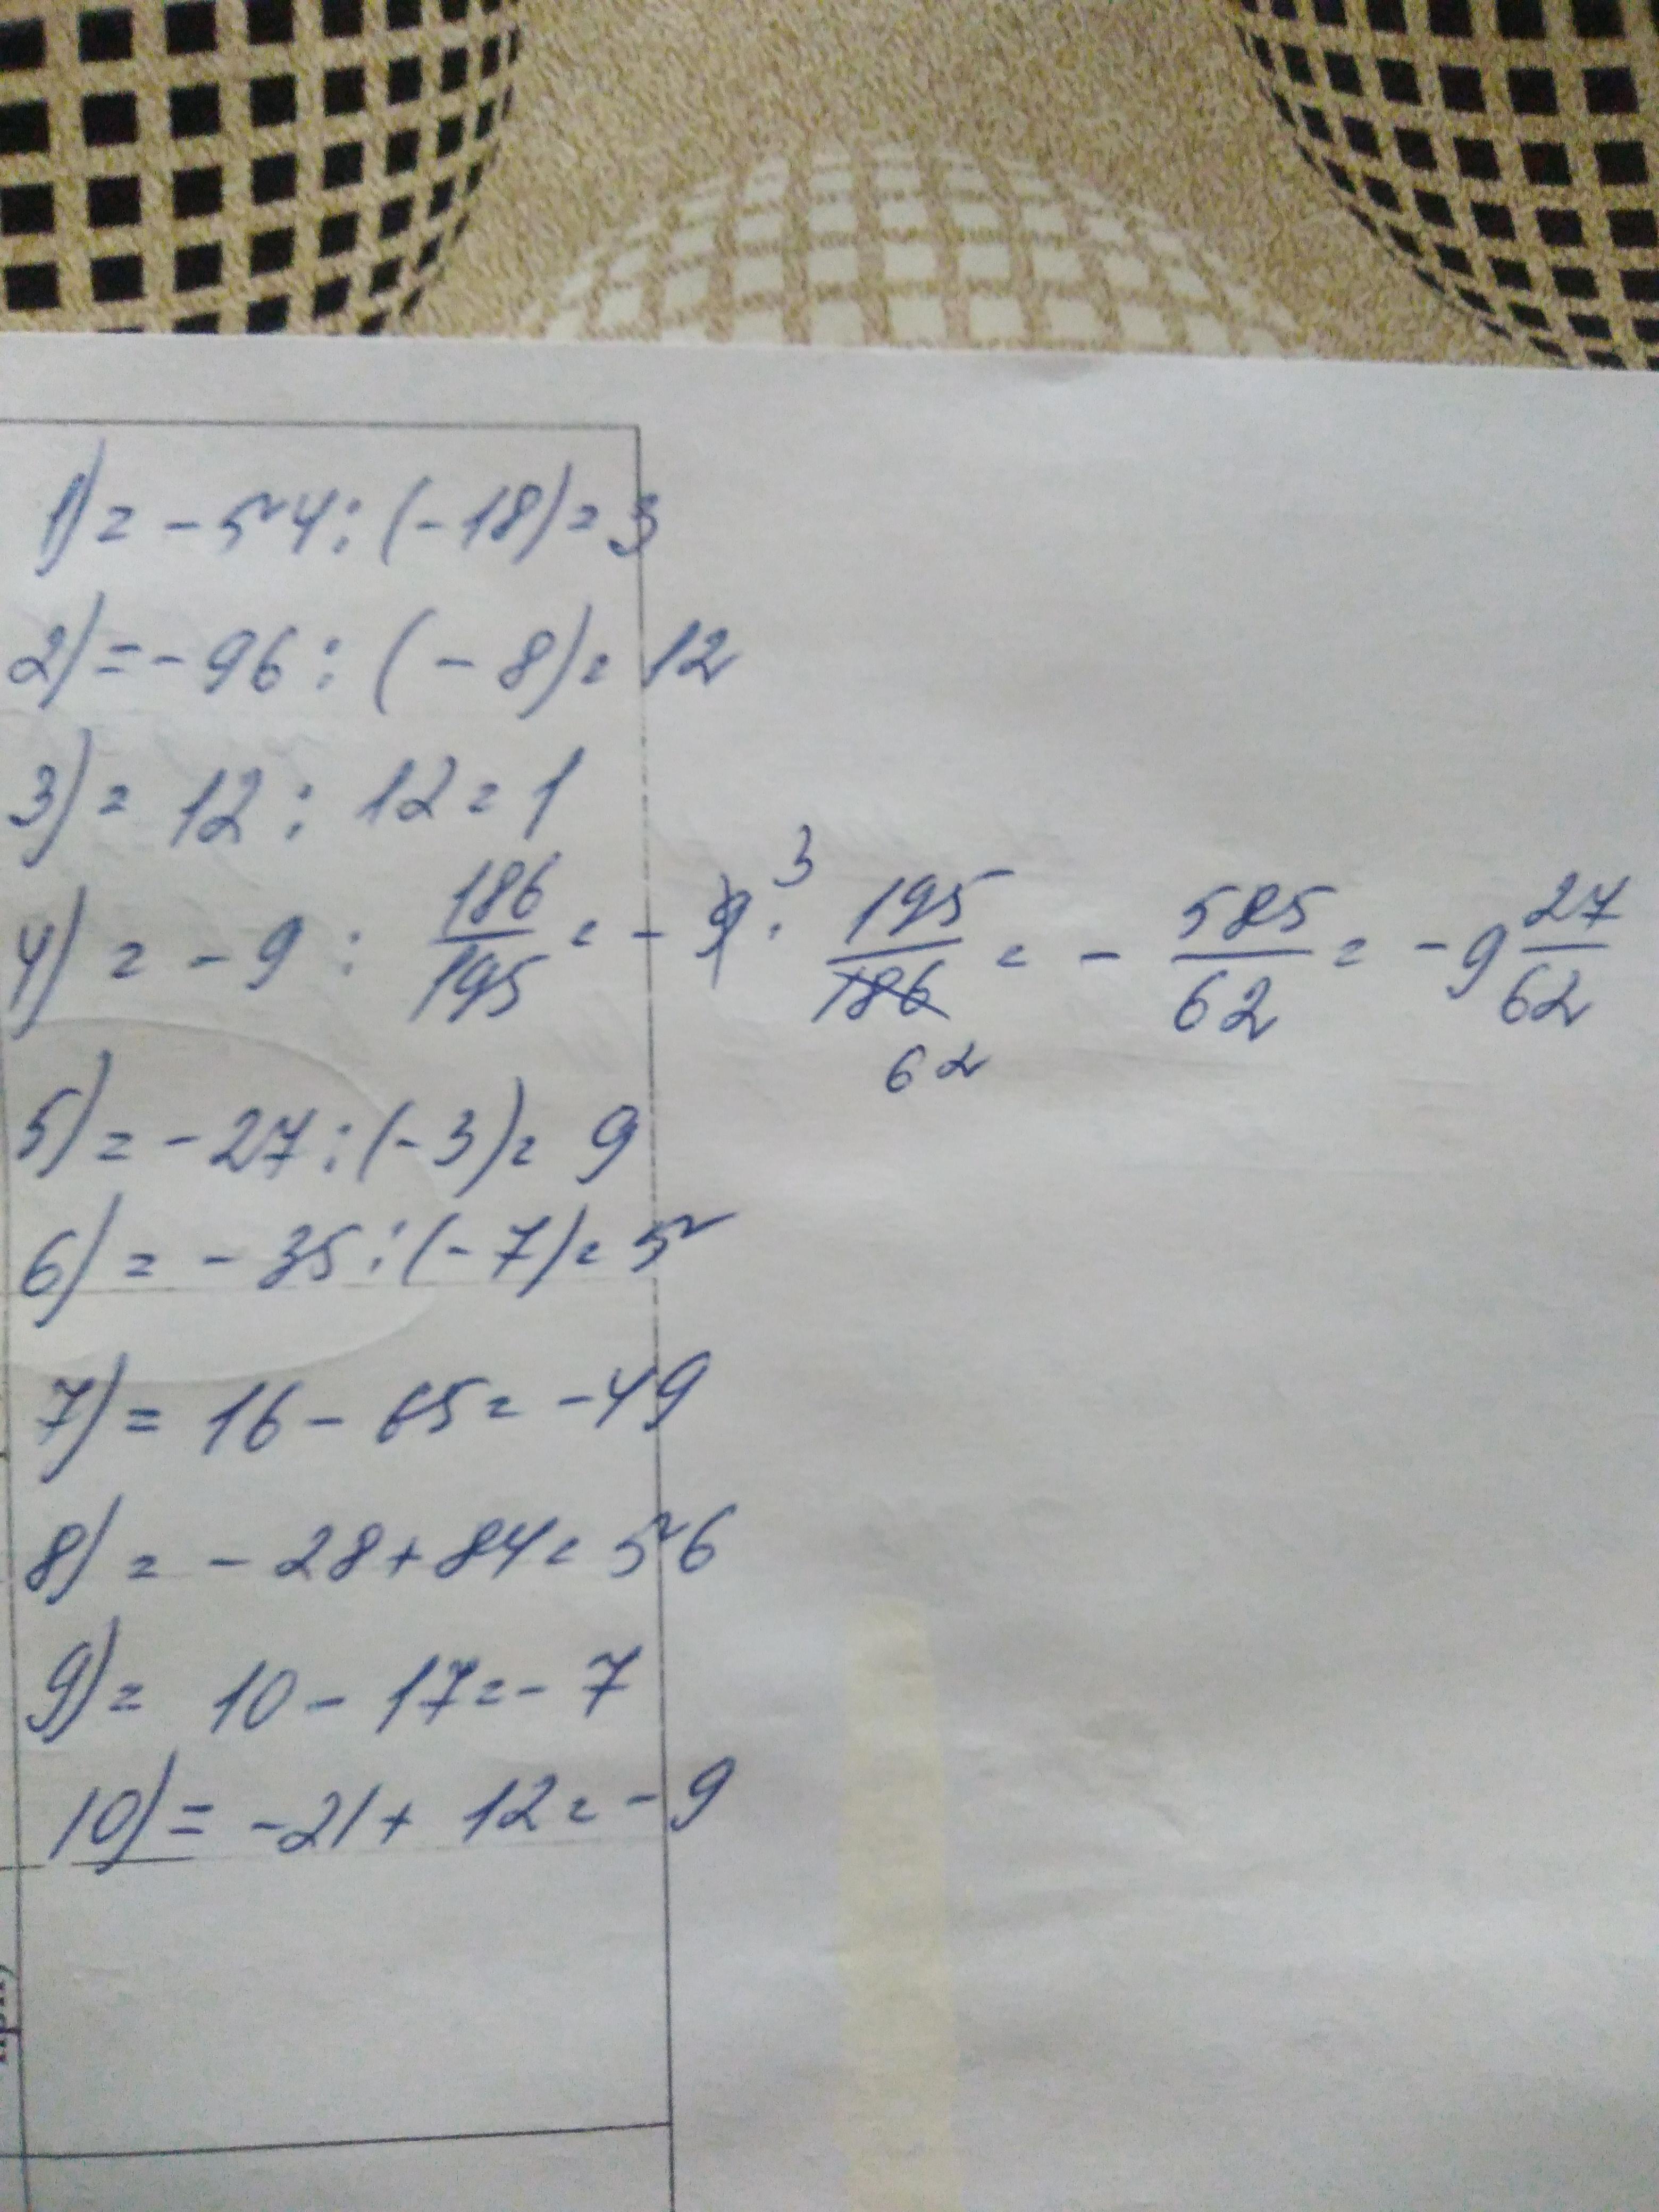 1) = -54 : (-18) = 3
2) = -96 : (-8) = 12
3) = 12 : 12 = 1
4) = -9 : 186/195 = -9 3 · 195/186 62 = - 585/62 = -9 27/62
5) = -27 : (-3) = 9
6) = -35 : (-7) = 5
7) = 16 - 65 = -49
8) = -28 + 84 = 56
9) = 10 - 17 = -7
10) = -21 + 12 = -9